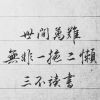 世間萬難
無非一拖二懶
三不讀書